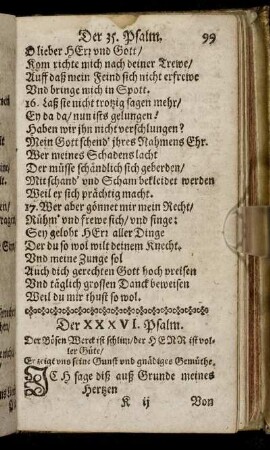 Der 35. Psalm. 99
O lieber HErr und Gott/
Kom richte mich nach deiner Trewe/
Auff daß mein Feind sich nicht erfrewe
Und bringe mich in Spott.
16. Laß sie nicht trotzig sagen mehr/
Ey da da/ nun ists gelungen?
Haben wir jhn nicht verschlungen?
Mein Gott schend' jhres Nahmens Ehr.
Wer meines Schadens lacht
Der müsse schändlich sich geberden/
Mit schand' und Scham bekleidet werden
Weil er sich prächtig macht.
17. Wer aber gönnet mir mein Recht/
Rühm' und frewe sich/ und singe:
Sey gelobt HErr aller Dinge
Der du so wol wilt deinem Knecht.
Und meine Zunge sol
Auch dich gerechten Gott hoch preisen
Und täglich grossen Danck beweisen
Weil du mir thust so wol.
Der XXXVI. Psalm.
Der Bösen Werck ist schlim/ der HERR ist vol-
ler Güte/
Er zeigt uns seine Gunst und gnädiges Gemüthe.
ICH sage diß auß Grunde meines
Hertzen
K ij Von